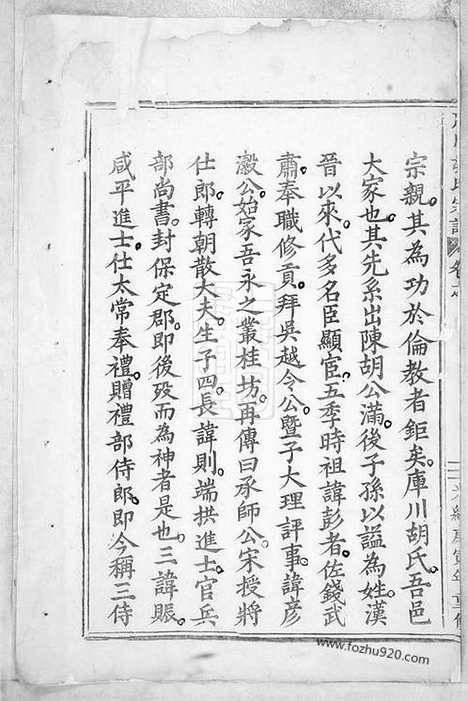 宗親。其為功於倫教者鉅矣。庫川胡氏。吾邑
大家也。其先系出陳胡公滿。後子孫以謚為姓。漢
晉以來。代多名臣顯宦。五季時祖諱彭者。佐錢武
肅。奉職修貢。拜吳越令公。暨子大理評事。諱彦
瀫。公始家吾永之叢桂坊。再傳曰承師公。宋授將
仕郎。轉朝散大夫。生子四。長諱則。端拱進士。官兵
部尚書。封保定郡。即後歿而為神者是也。三諱賑。
咸平進士。仕太常奉禮。贈禮部侍郎。即今稱三侍
www.fozhu920.com